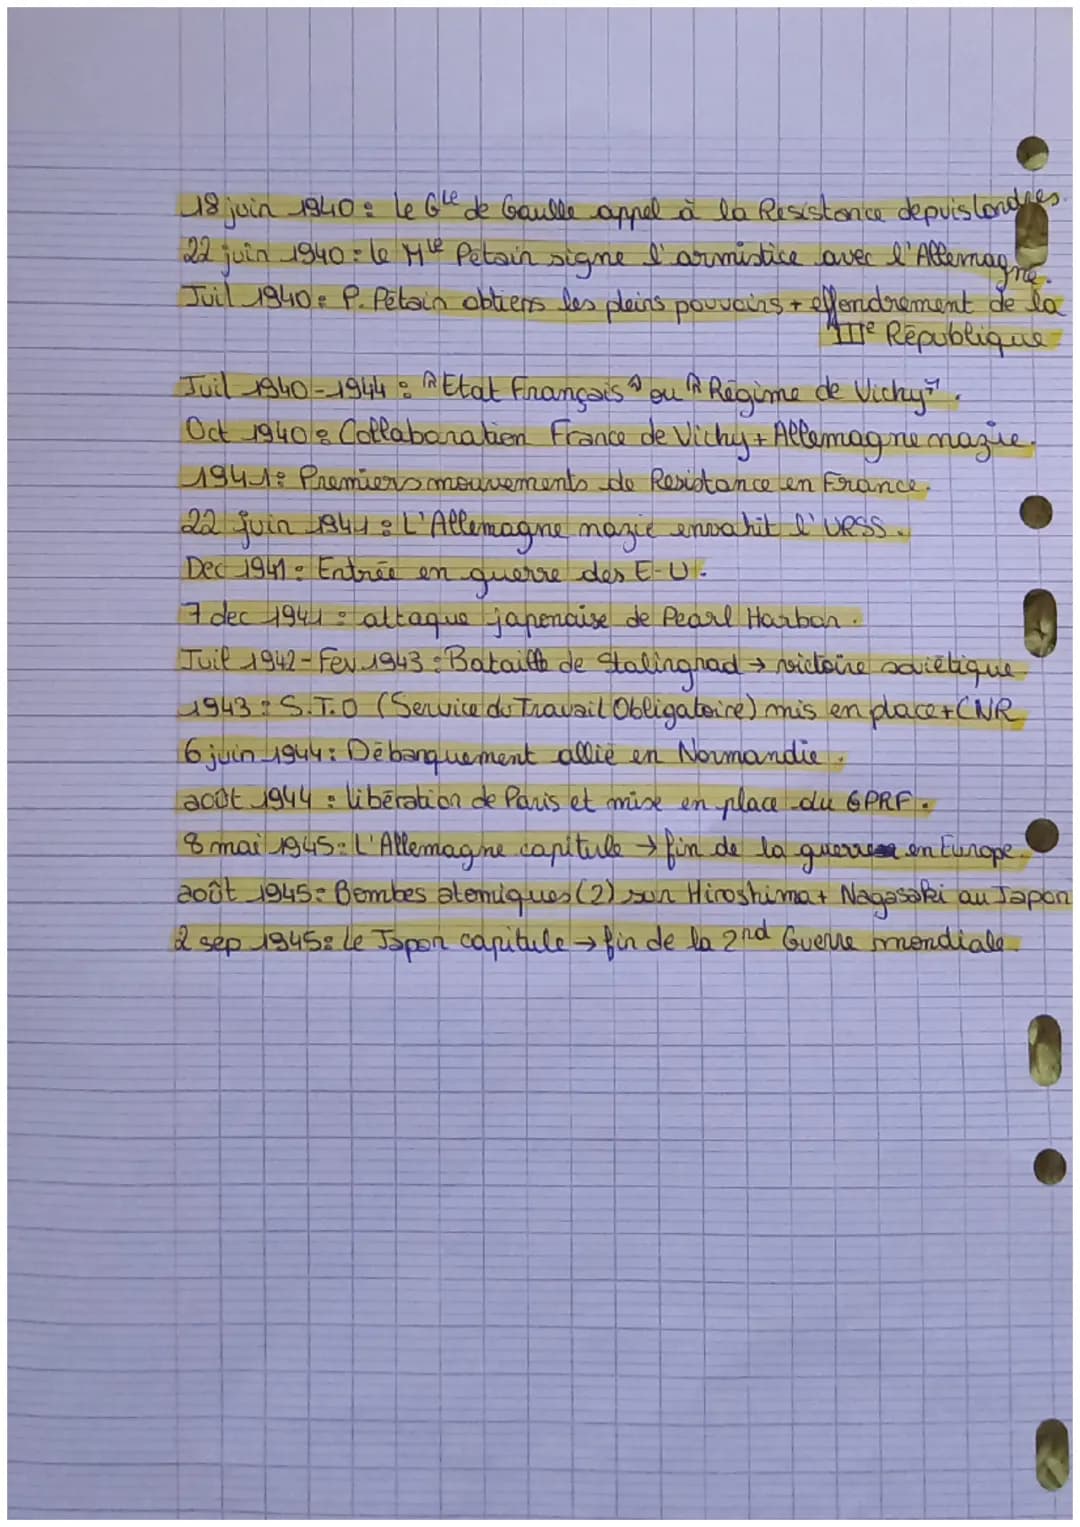 18 juin 1940 : le Gle de Gaulle appel à la Resistance depuis londres.
22 juin 1940 : le Mle Petain signe l'armistice avec l'Allemagne.
Juil 1940 : P. Pétain obtiens les pleins pouvoirs + effondrement de la
IIIe République
Juil 1940-1944 : "Etat Français" ou "Régime de Vichy".
Oct 1940 : Collaboration France de Vichy + Allemagne nazie.
1941 : Premiers mouvements de Resistance en France.
22 juin 1941 : L'Allemagne nazie envahit l'URSS.
Dec 1941 : Entrée en guerre des E-U.
7 dec 1941 : attaque japonaise de Pearl Harbor.
Juil 1942 - Fev 1943 : Bataille de Stalingrad → victoire soviétique
1943 : S.T.O (Service du Travail Obligatoire) mis en place + CNR
6 juin 1944 : Débarquement allié en Normandie.
août 1944 : libération de Paris et mise en place du GPRF.
8 mai 1945 : L'Allemagne capitule → fin de la guerre en Europe.
août 1945 : Bombes atomiques (2) sur Hiroshima + Nagasaki au Japon
2 sep 1945 : Le Japon capitule → fin de la 2nd Guerre mondiale.